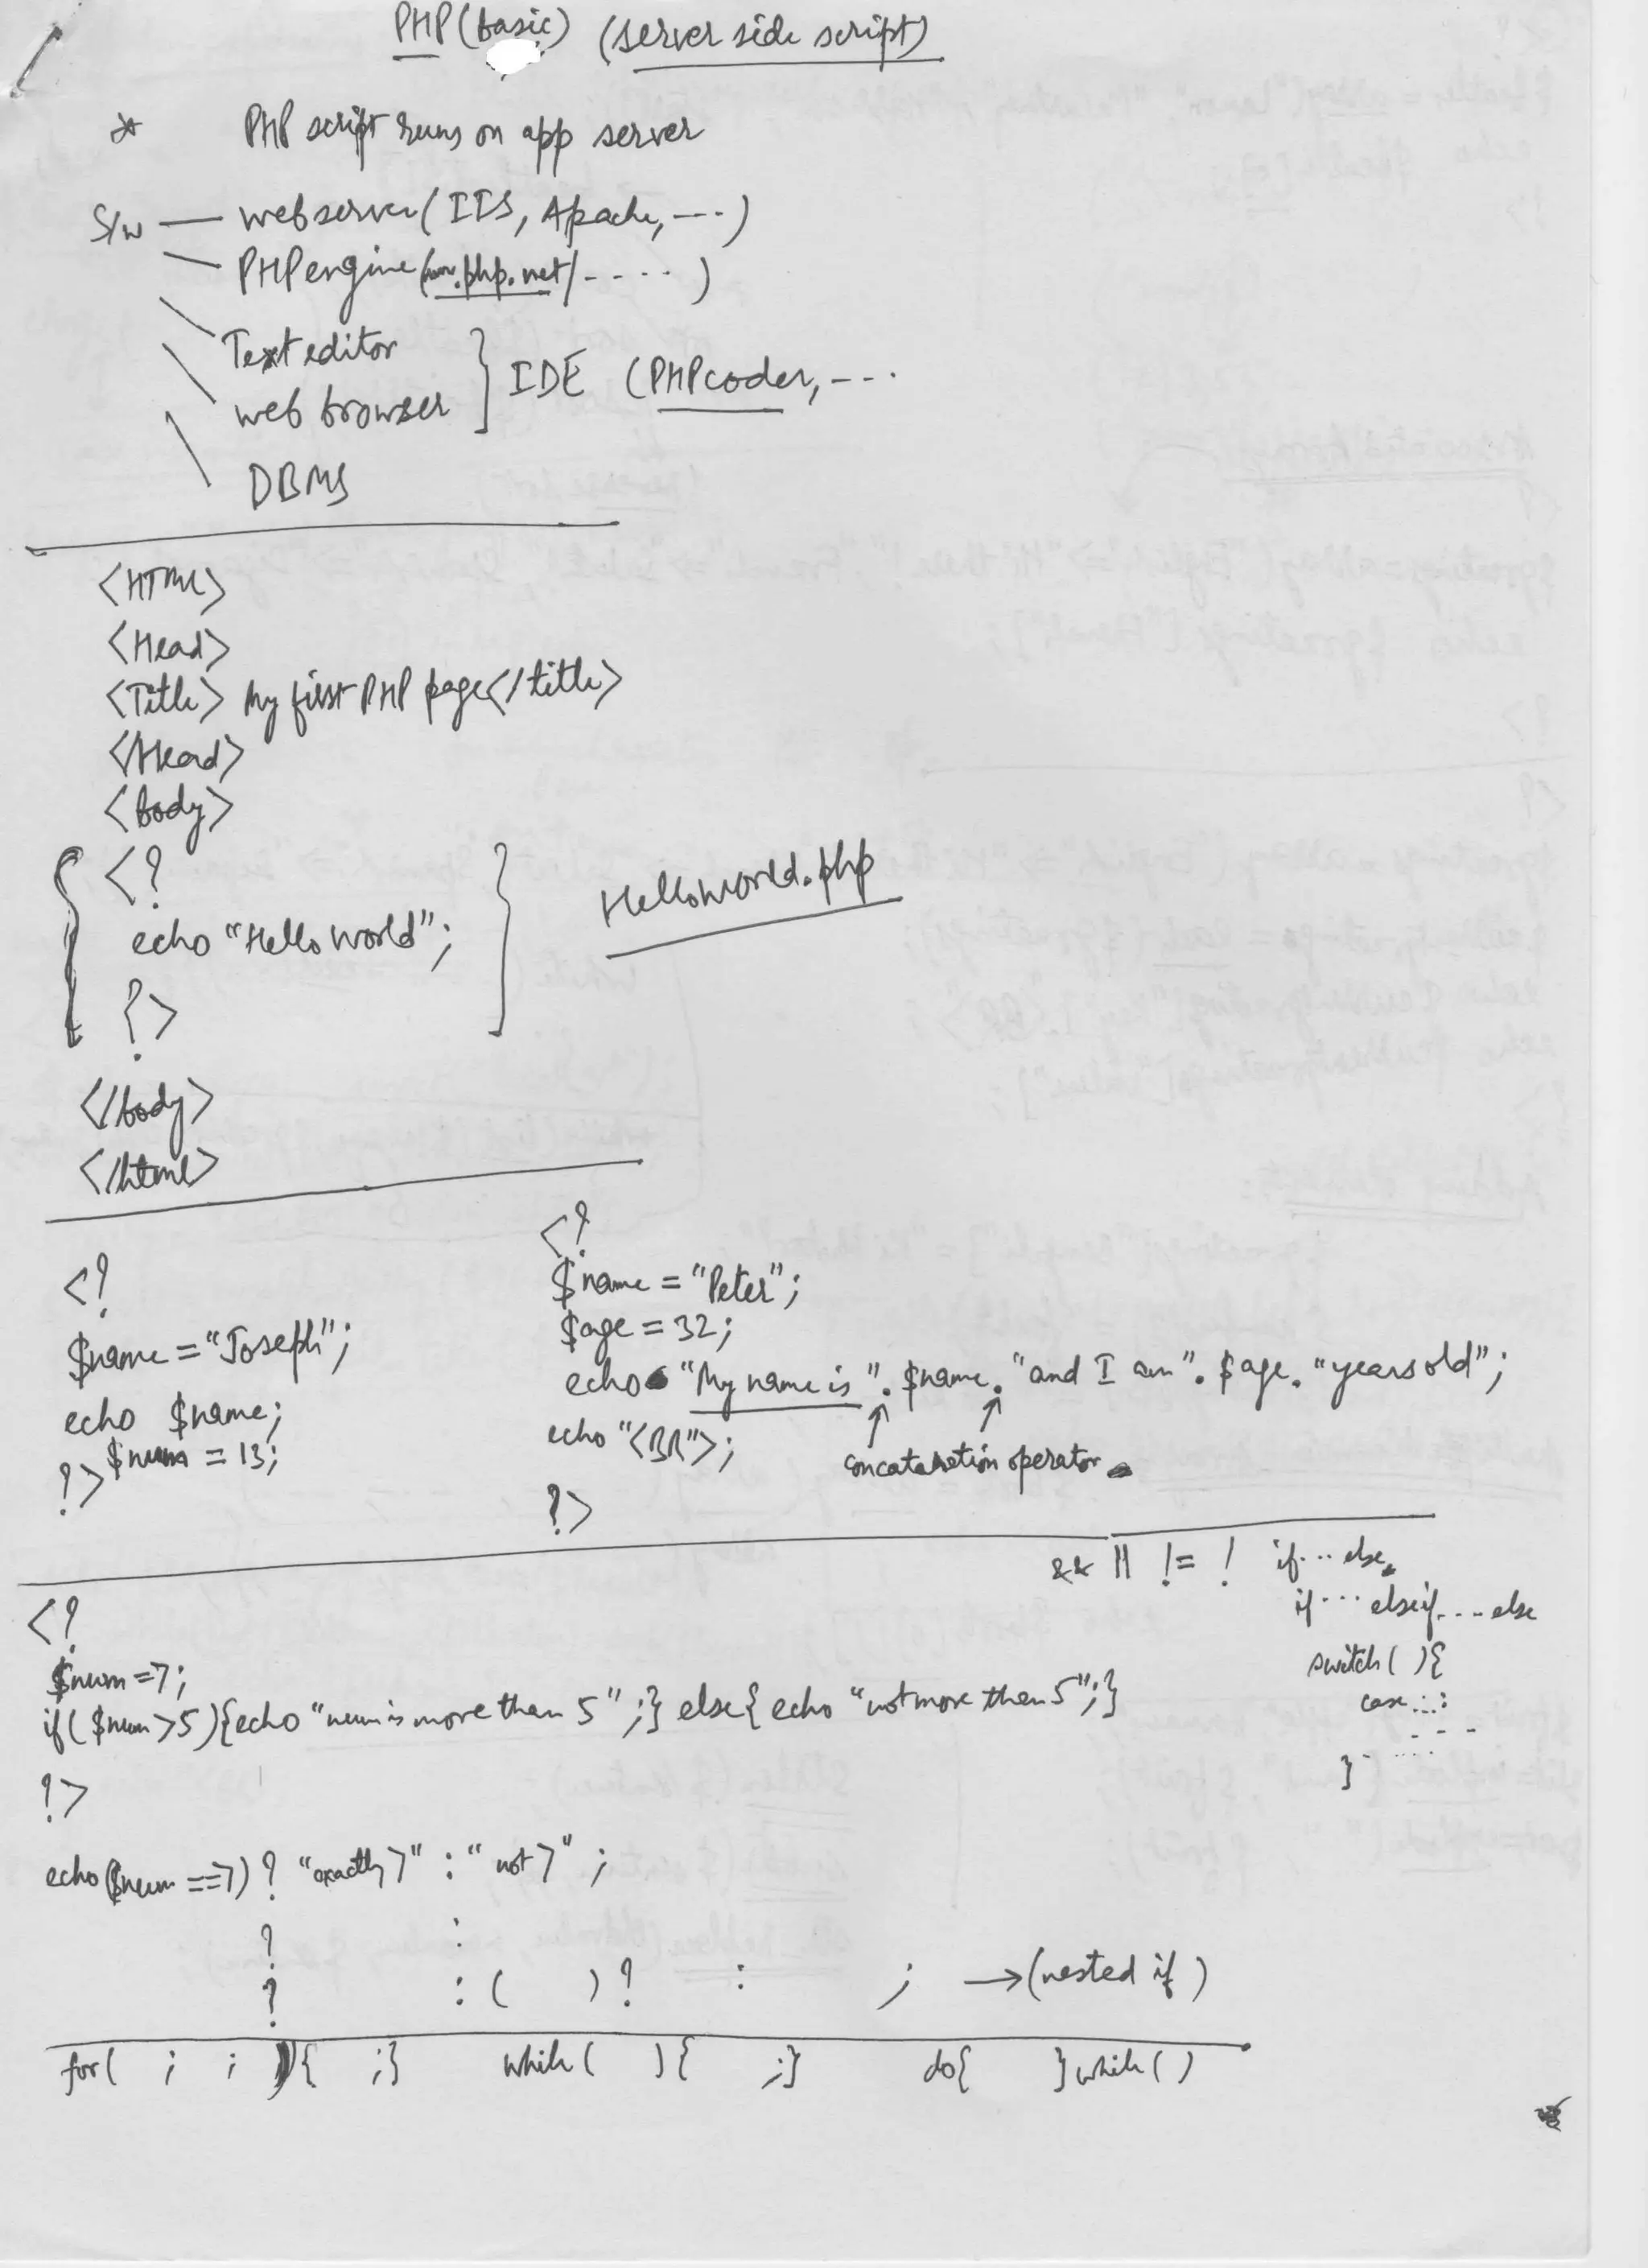 PHP (basic) (server side script)
* PHP script runs on app server
S/w — webserver (IIS, Apache, ---)
— PHP engine (www.php.net/-----)
Text editor
web browser } IDE (PHPcoder, ---
DBMS
<HTML>
<Head>
<Title> My first PHP page</title>
</Head>
<body>
<?
echo "Hello world";
?>
Helloworld.php
</body>
</html>
<?
$name = "Joseph";
echo $name;
$num = 13;
?>
<?
$name = "Peter";
$age = 32;
echo "My name is ". $name. "and I am". $age. "years old";
echo "<BR">;
concatenation operator
?>
&& || != ! if... else
if... elseif.... else
switch( ){
case...:
- - -
}
<?
$num=7;
if($num>5){echo "num is more than 5";} else{ echo "not more than 5";}
?>
echo($num==7) ? "exactly 7" : "not 7" ;
? :
? : ( ) ? : ; →(nested if)
for( ; ; ){ ;} while( ){ ;} do{ }while()